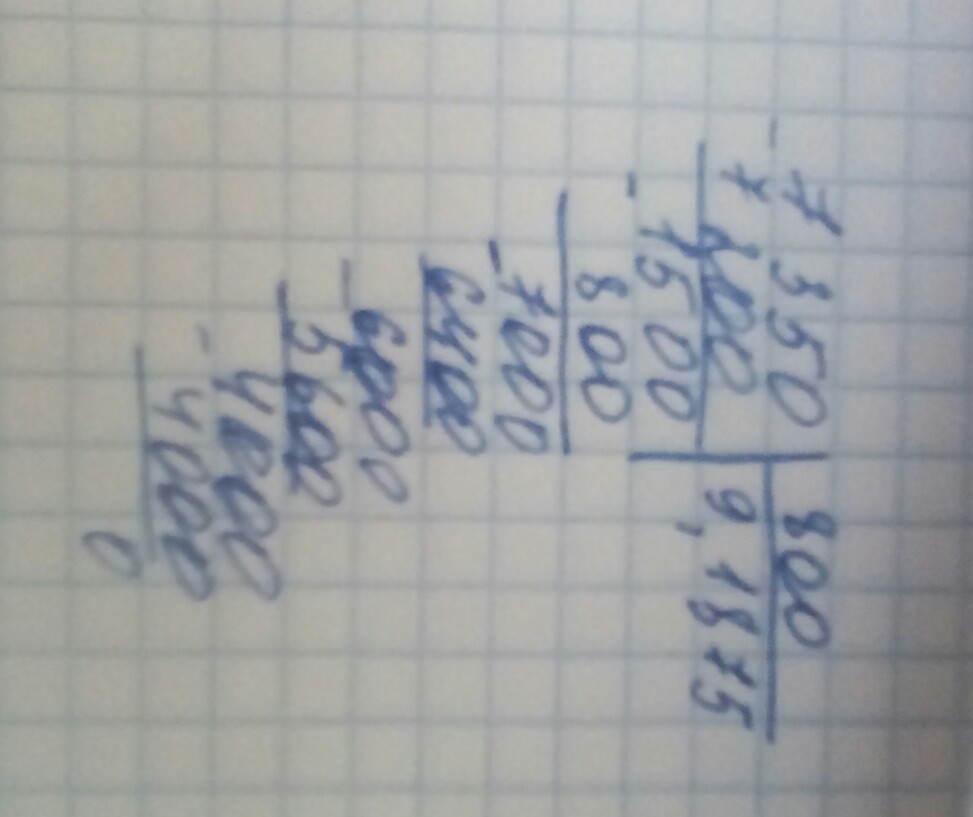 - 7350 | 800
7200 | 9,1875
- 1500
800
- 7000
6400
- 6000
5600
- 4000
4000
0